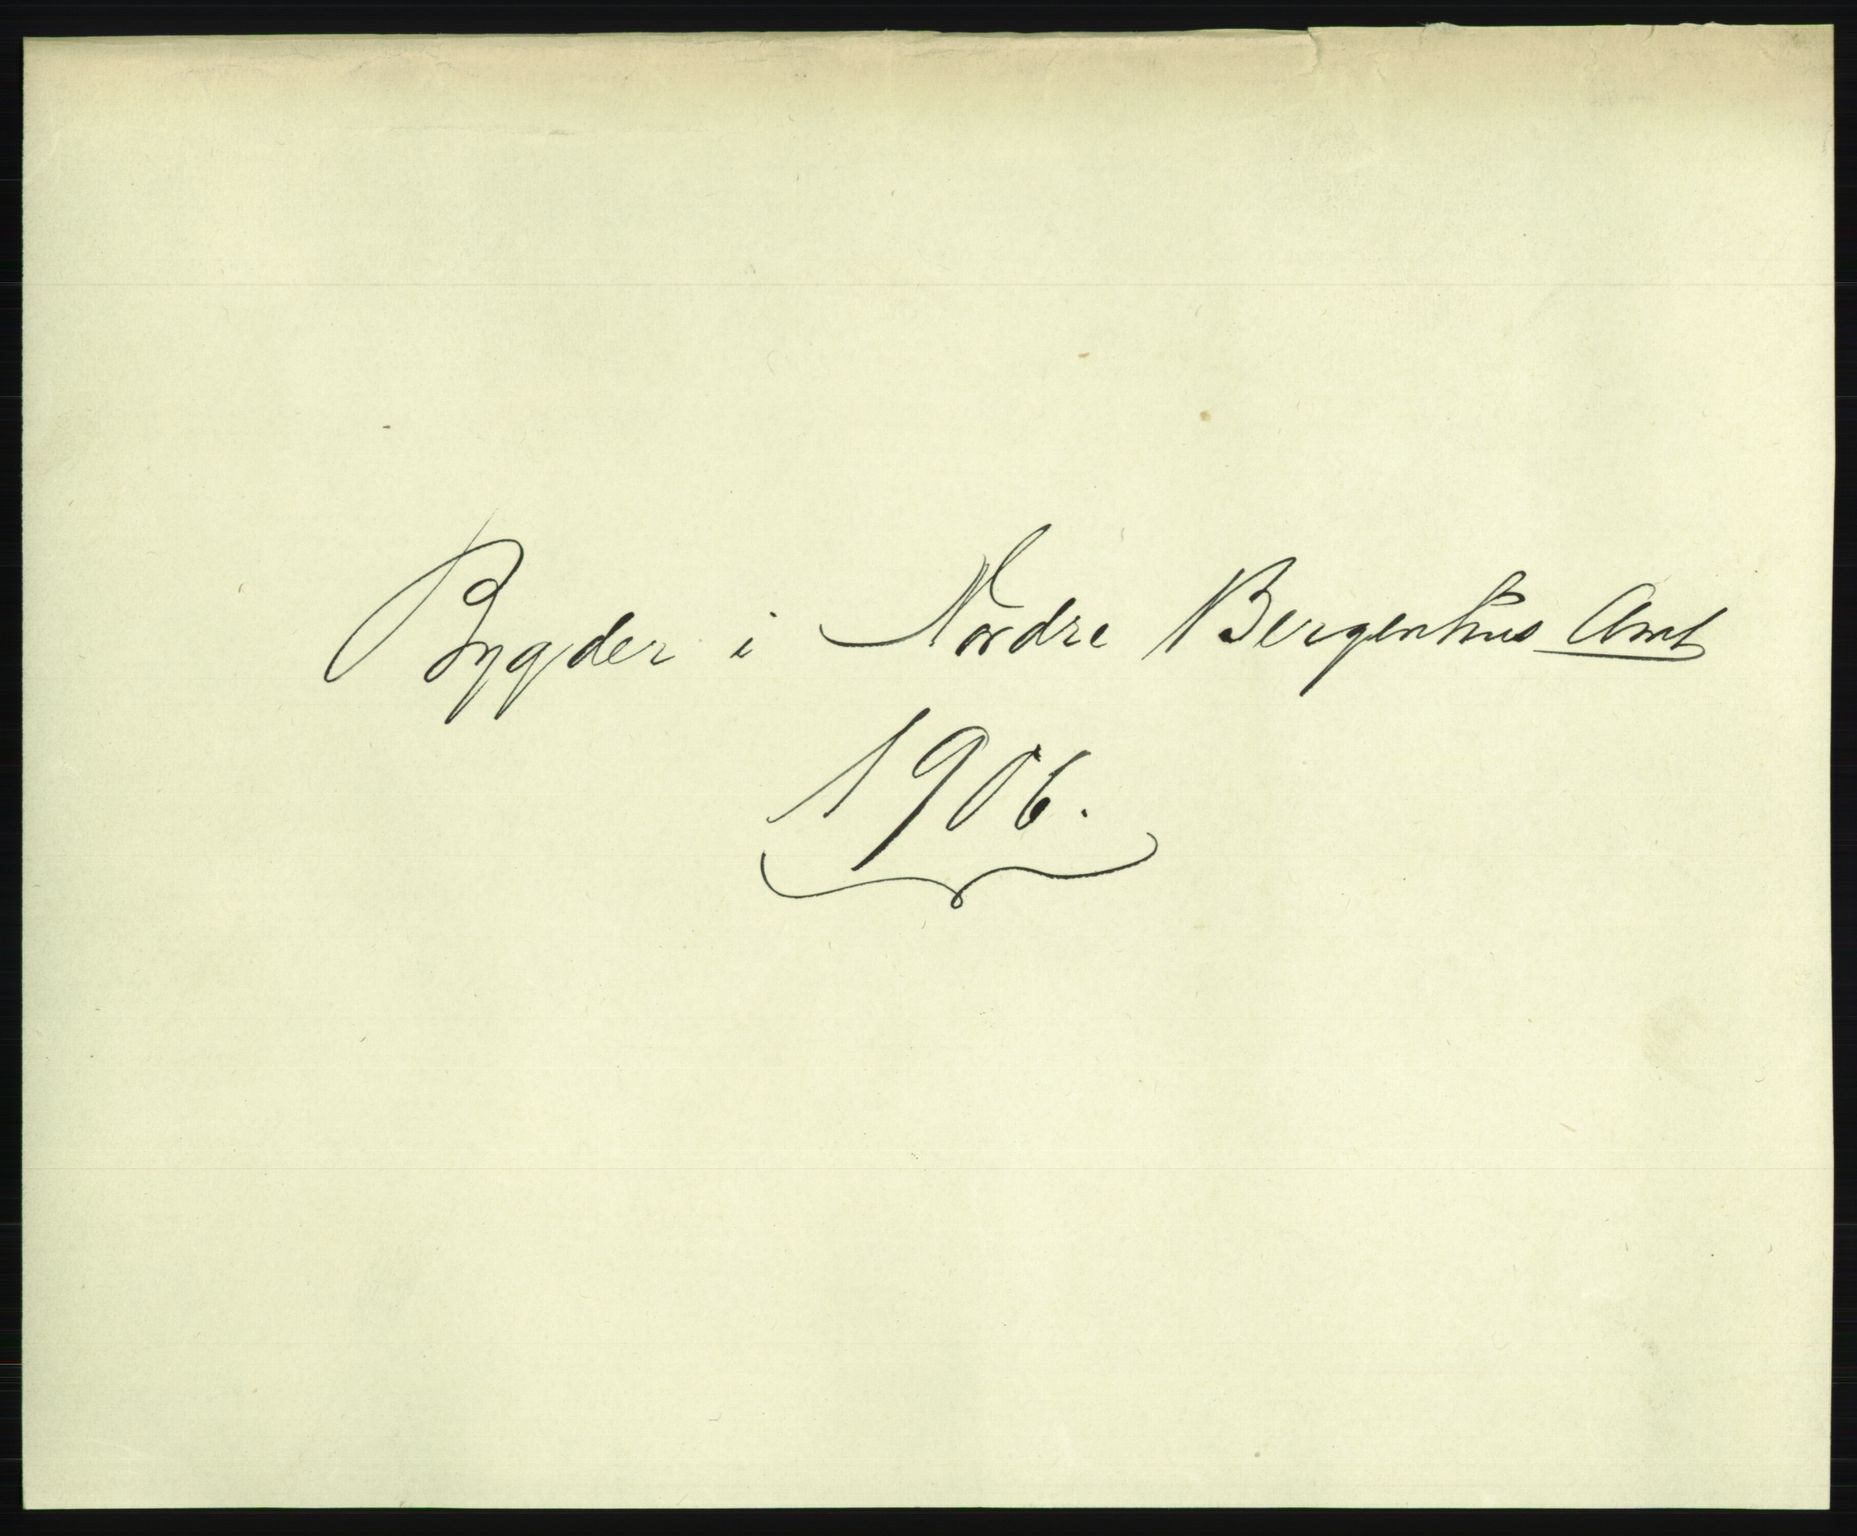 Bygder i Nordre Bergenhus Amt
1906.